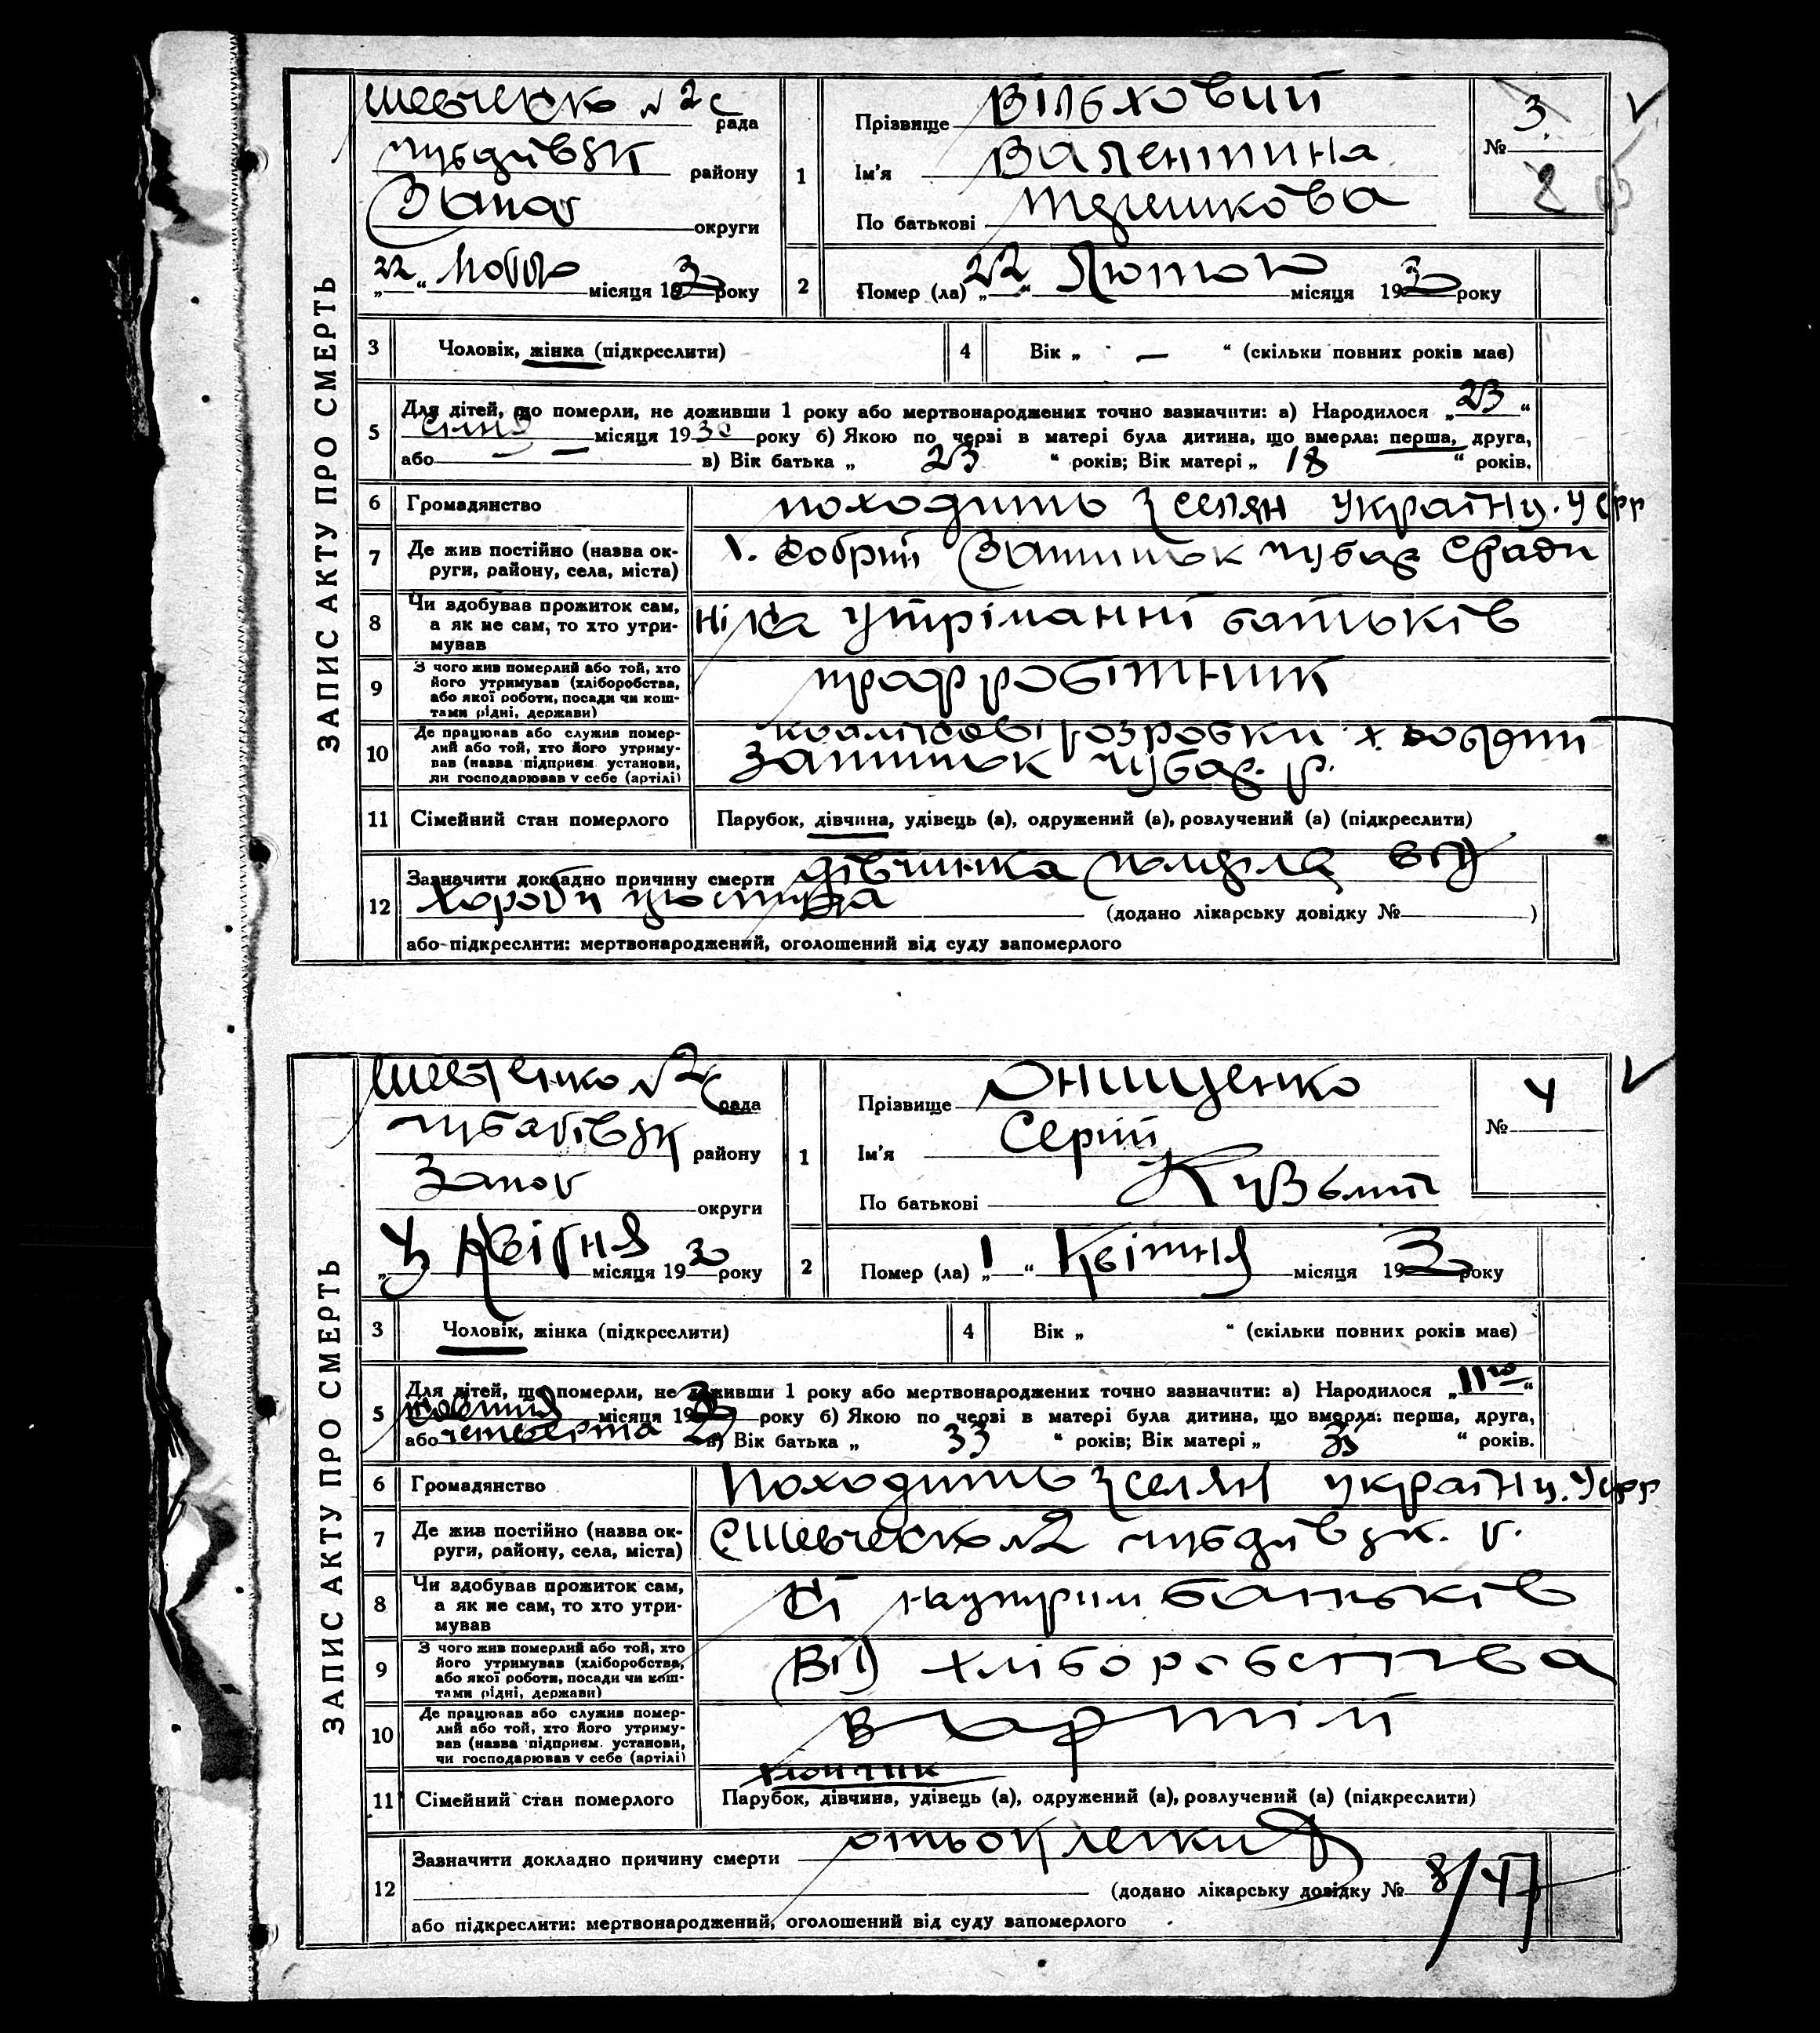 ЗАПИС АКТУ ПРО СМЕРТЬ
Шевченко №2 с рада
району
Запор округи
"22" місяця 1930 року
1
Прізвище Вільховий
Ім'я Валентина
По батькові
№ 3
2
Помер (ла) "22" Лютого місяця 1930 року
3 Чоловік, жінка (підкреслити)
4 Вік „ — “ (скільки повних років має)
5 Для дітей, що померли, не доживши 1 року або мертвонароджених точно зазначити: а) Народилося „23“
січня місяця 1930 року б) Якою по черзі в матері була дитина, що вмерла: перша, друга,
або — в) Вік батька „ 23 “ років; Вік матері „ 18 “ років.
6 Громадянство походить з селян україн У.С.р.р
7 Де жив постійно (назва ок-
руги, району, села, міста) х. Добрий Затишок чубар с ради
8 Чи здобував прожиток сам,
а як не сам, то хто утри-
мував ні на утріманні батьків
9 З чого жив померлий або той, хто
його утримував (хліборобства,
або якої роботи, посади чи кош-
тами рідні, держави) робітник
10 Де працював або служив помер-
лий або той, хто його утриму-
вав (назва підприєм. установи,
чи господарював у себе (артілі) розробки х добрий
Затишок чубар. р.
11 Сімейний стан померлого Парубок, дівчина, удівець (а), одружений (а), розлучений (а) (підкреслити)
12 Зазначити докладно причину смерти дівчинка померла від
хороби
(додано лікарську довідку № )
або підкреслити: мертвонароджений, оголошений від суду запомерлого
ЗАПИС АКТУ ПРО СМЕРТЬ
Шевченко №2 с рада
району
Запор округи
місяця 1930 року
1
Прізвище Онищенко
Ім'я Сергій
По батькові Кузьмич
№ 4
2
Помер (ла) „1“ Квітня місяця 1930 року
3 Чоловік, жінка (підкреслити)
4 Вік „ “ (скільки повних років має)
5 Для дітей, що померли, не доживши 1 року або мертвонароджених точно зазначити: а) Народилося „11го“
місяця 19 року б) Якою по черзі в матері була дитина, що вмерла: перша, друга,
або четверта в) Вік батька „ 33 “ років; Вік матері „ “ років.
6 Громадянство Походить з селян україн У.с.р.р
7 Де жив постійно (назва ок-
руги, району, села, міста) с Шевченко №2 р.
8 Чи здобував прожиток сам,
а як не сам, то хто утри-
мував ні на утрим батьків
9 З чого жив померлий або той, хто
його утримував (хліборобства,
або якої роботи, посади чи кош-
тами рідні, держави) Від хліборобства
10 Де працював або служив помер-
лий або той, хто його утриму-
вав (назва підприєм. установи,
чи господарював у себе (артілі) в артілі
хлопчик
11 Сімейний стан померлого Парубок, дівчина, удівець (а), одружений (а), розлучений (а) (підкреслити)
12 Зазначити докладно причину смерти
(додано лікарську довідку № 8/47
або підкреслити: мертвонароджений, оголошений від суду запомерлого